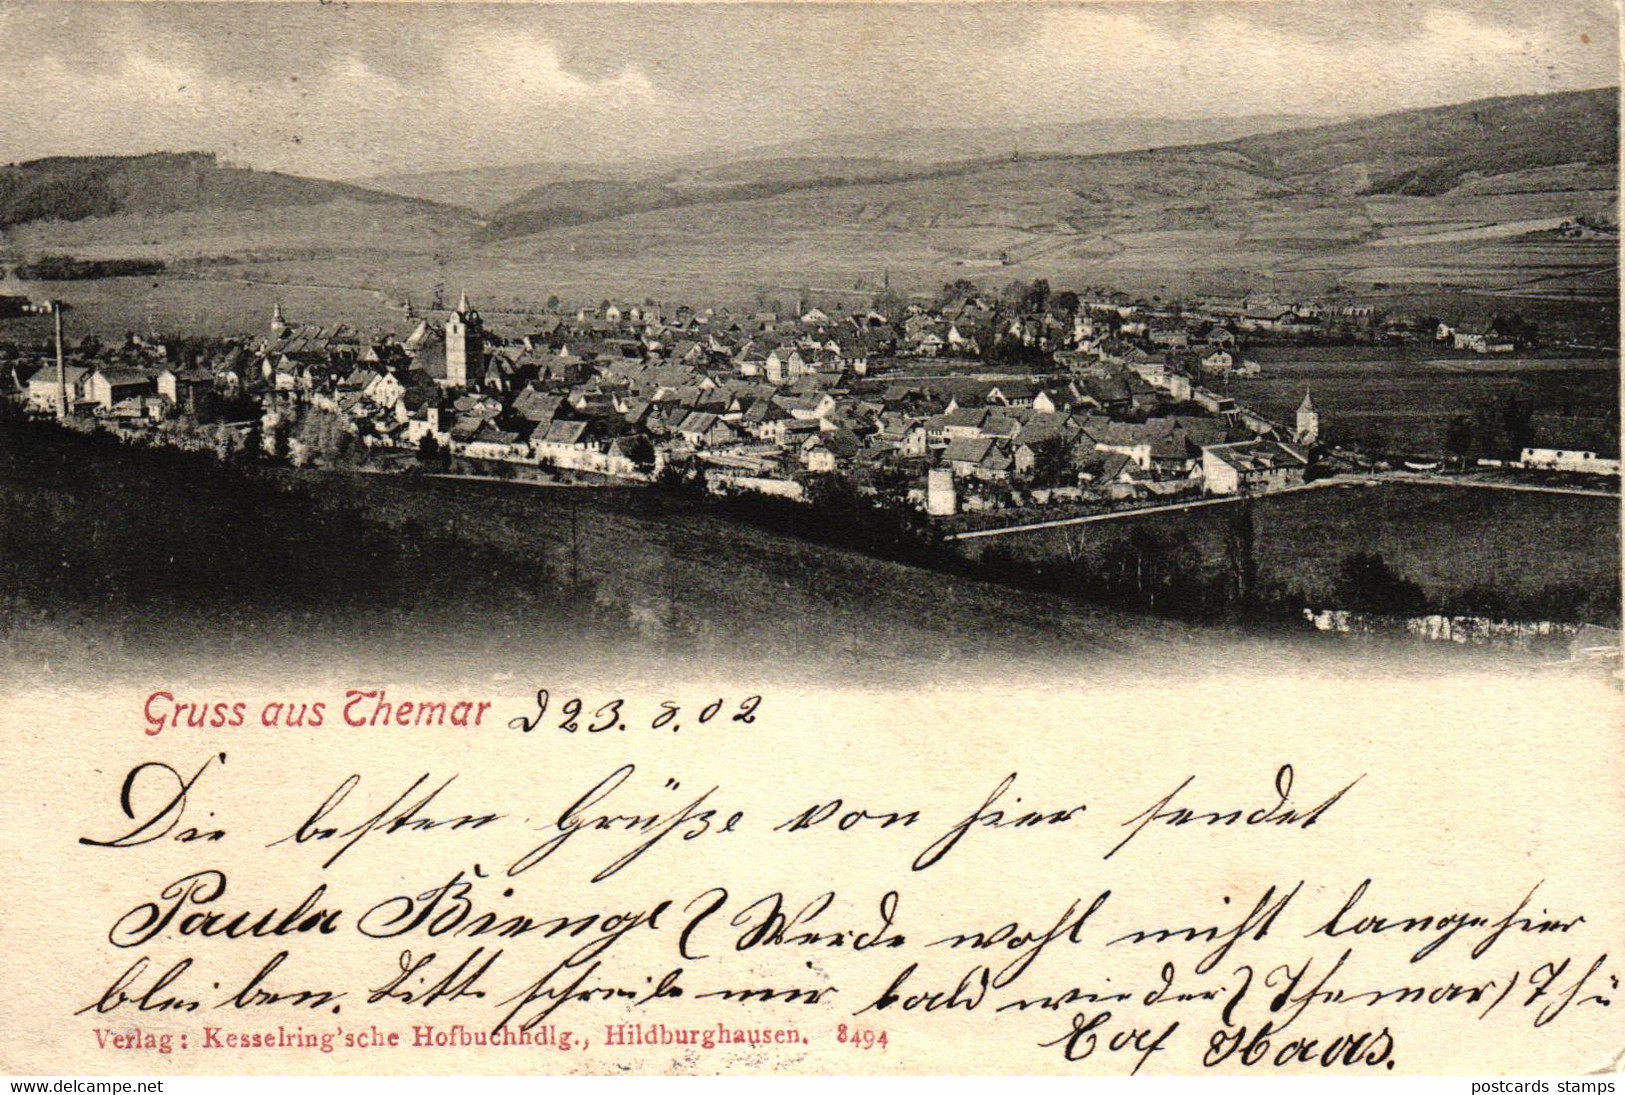 Gruss aus Themar d 23. 8. 02
Die besten Grüße von hier sendet
Paula Biengl (Werde wohl nicht lange hier
bleiben. Bitte schreibe mir bald wieder) Themar) Thü
Verlag: Kesselring'sche Hofbuchhdlg., Hildburghausen. 8494
Caf Haas.
postcards stamps